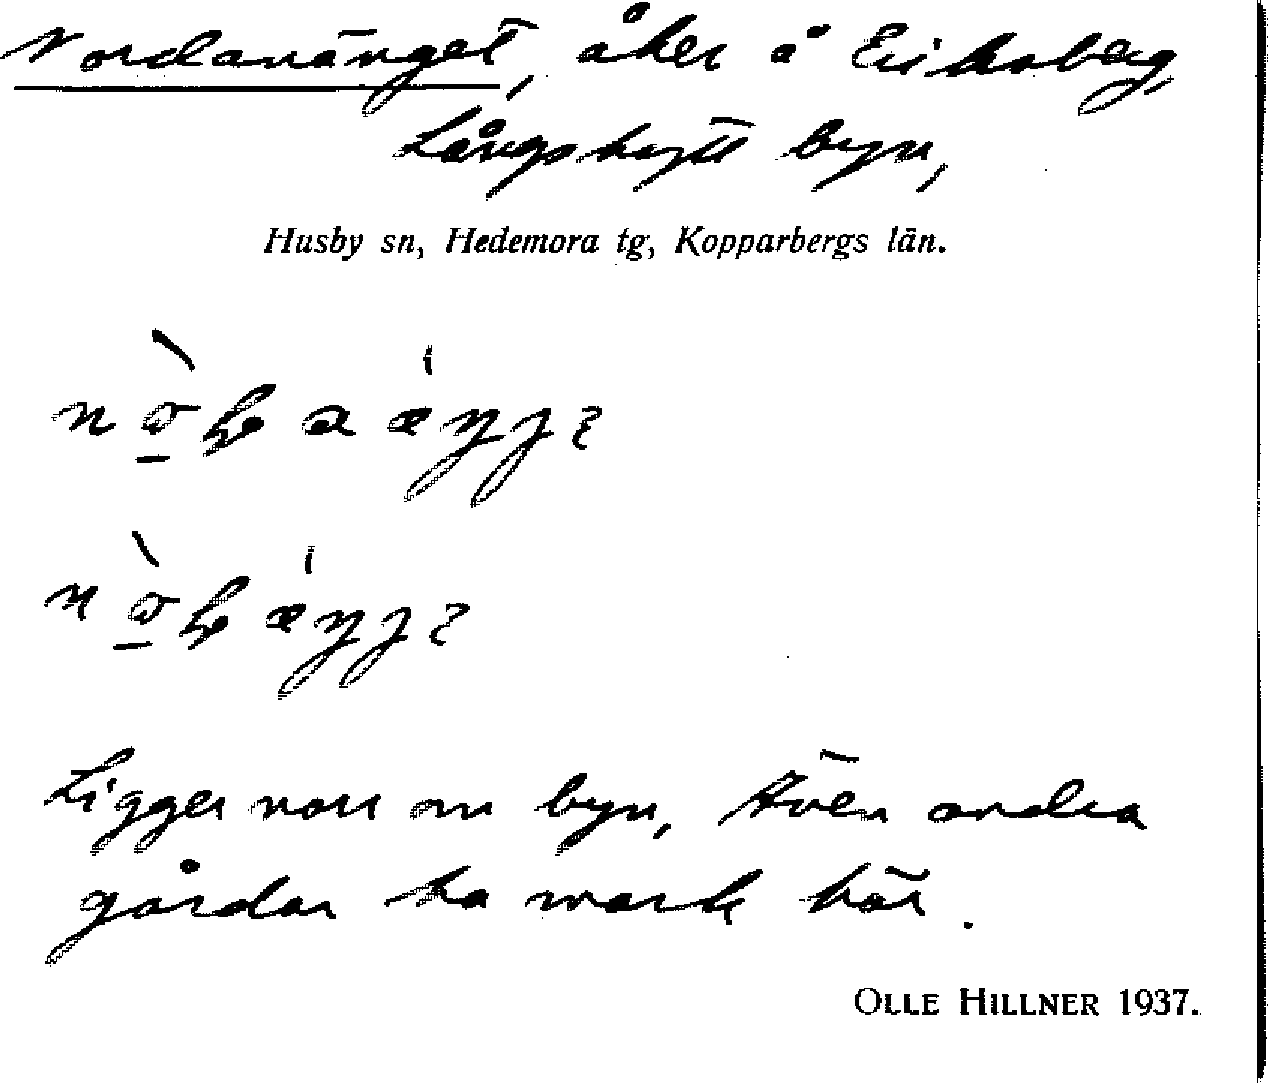 Nordanänget, åker å Eriksberg,
Långshytt byn,
Husby sn, Hedemora tg, Kopparbergs län.
Ligger norr om byn, Även andra
gårdar ha mark här.
OLLE HILLNER 1937.